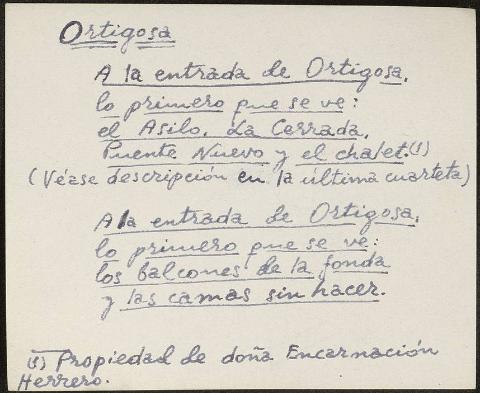 Ortigosa
A la entrada de Ortigosa,
lo primero que se ve:
el Asilo, La Cerrada,
Puente Nuevo y el chalet.(1)
(Véase descripción en la última cuarteta)
A la entrada de Ortigosa,
lo primero que se ve:
los balcones de la fonda
y las camas sin hacer.
(1) Propiedad de doña Encarnación
Herrero.